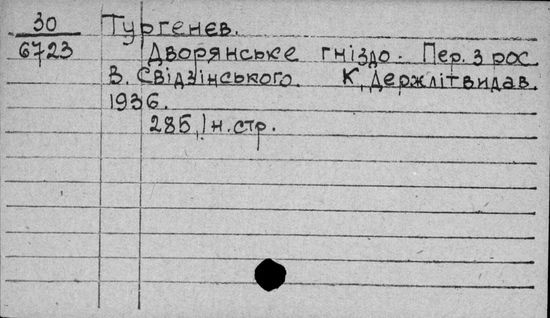 30
6723
Тургенев.
Дворянське гніздо. Пер. з рос.
В. Свідзінського. К, Держлітвидав.
1936.
285, 1 н. стр.